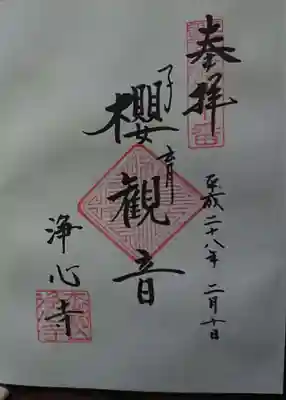 奉拝
平成二十八年 二月十日
子育
櫻観音
浄心寺